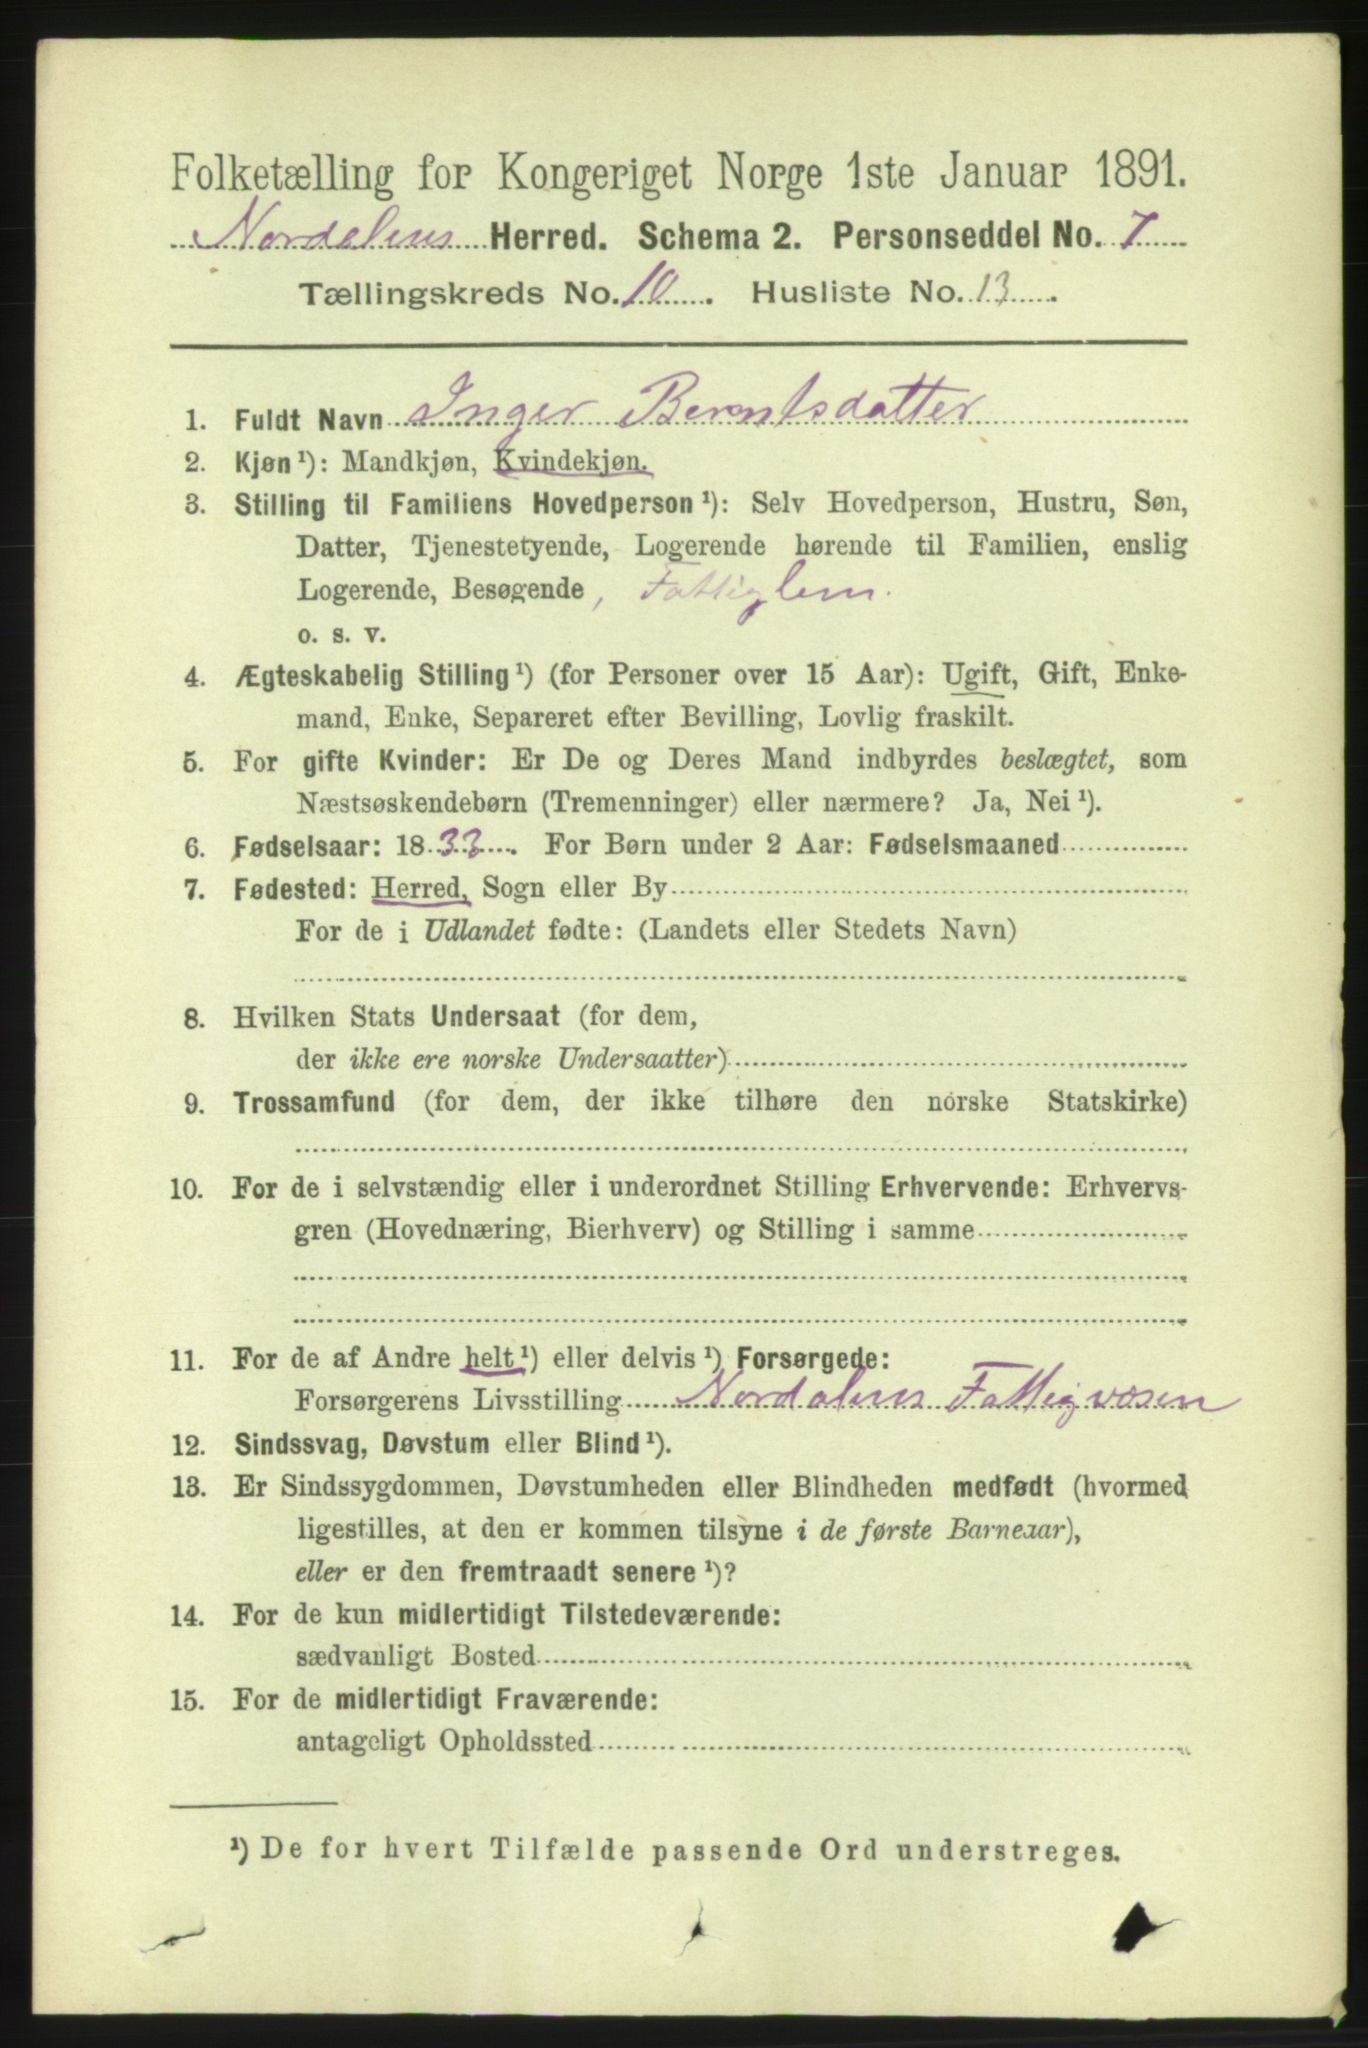 Folketælling for Kongeriget Norge 1ste Januar 1891.
Nordalens Herred. Schema 2. Personseddel No. 7
Tællingskreds No. 10. Husliste No. 13.
1. Fuldt Navn Inger Berntsdatter
2. Kjøn ¹): Mandkjøn, Kvindekjøn.
3. Stilling til Familiens Hovedperson ¹): Selv Hovedperson, Hustru, Søn,
Datter, Tjenestetyende, Logerende hørende til Familien, enslig
Logerende, Besøgende, Fattiglem.
o. s. v.
4. Ægteskabelig Stilling ¹) (for Personer over 15 Aar): Ugift, Gift, Enke-
mand, Enke, Separeret efter Bevilling, Lovlig fraskilt.
5. For gifte Kvinder: Er De og Deres Mand indbyrdes beslægtet, som
Næstsøskendebørn (Tremenninger) eller nærmere? Ja, Nei ¹).
6. Fødselsaar: 1833. For Børn under 2 Aar: Fødselsmaaned
7. Fødested: Herred, Sogn eller By
For de i Udlandet fødte: (Landets eller Stedets Navn)
8. Hvilken Stats Undersaat (for dem,
der ikke ere norske Undersaatter)
9. Trossamfund (for dem, der ikke tilhøre den norske Statskirke)
10. For de i selvstændig eller i underordnet Stilling Erhvervende: Erhvervs-
gren (Hovednæring, Bierhverv) og Stilling i samme
11. For de af Andre helt ¹) eller delvis ¹) Forsørgede:
Forsørgerens Livsstilling Nordalens Fattigvæsen
12. Sindssvag, Døvstum eller Blind ¹).
13. Er Sindssygdommen, Døvstumheden eller Blindheden medfødt (hvormed
ligestilles, at den er kommen tilsyne i de første Barneaar),
eller er den fremtraadt senere ¹)?
14. For de kun midlertidigt Tilstedeværende:
sædvanligt Bosted
15. For de midlertidigt Fraværende:
antageligt Opholdssted
¹) De for hvert Tilfælde passende Ord understreges.